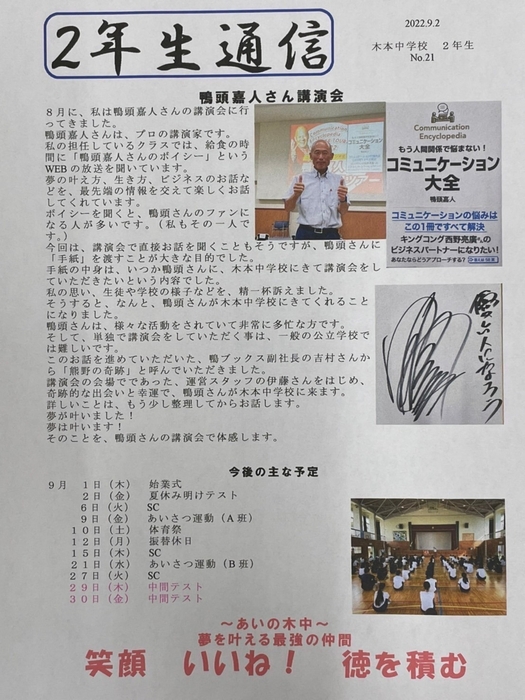 2年生通信
2022.9.2
木本中学校　2年生
No.21
鴨頭嘉人さん講演会
8月に、私は鴨頭嘉人さんの講演会に行
ってきました。
鴨頭嘉人さんは、プロの講演家です。
私の担任しているクラスでは、給食の時
間に「鴨頭嘉人さんのボイシー」という
WEBの放送を聞いています。
夢の叶え方、生き方、ビジネスのお話な
どを、最先端の情報を交えて楽しくお話
してくれています。
ボイシーを聞くと、鴨頭さんのファンに
なる人が多いです。（私もその一人で
す。）
今回は、講演会で直接お話を聞くこともそうですが、鴨頭さんに
「手紙」を渡すことが大きな目的でした。
手紙の中身は、いつか鴨頭さんに、木本中学校にきて講演会をし
ていただきたいという内容でした。
私の思い、生徒や学校の様子などを、精一杯訴えました。
そうすると、なんと、鴨頭さんが木本中学校にきてくれること
になりました。
鴨頭さんは、様々な活動をされていて非常に多忙な方です。
そして、単独で講演会をしていただく事は、一般の公立学校で
は難しいです。
このお話を進めていただいた、鴨ブックス副社長の吉村さんか
ら「熊野の奇跡」と呼んでいただきました。
講演会の会場でであった、運営スタッフの伊藤さんをはじめ、
奇跡的な出会いと幸運で、鴨頭さんが木本中学校に来ます。
詳しいことは、もう少し整理してからお話します。
夢が叶いました！
夢は叶います！
そのことを、鴨頭さんの講演会で体感します。
Communication
Encyclopedia
もう人間関係で悩まない！
コミュニケーション
大全
鴨頭嘉人
コミュニケーションの悩みは
この1冊ですべて解決
キングコング西野亮廣さんの
ビジネスパートナーになりたい！
あなたならどうアプローチする？
今後の主な予定
9月　1日（木）　始業式
2日（金）　夏休み明けテスト
6日（火）　SC
9日（金）　あいさつ運動（A班）
10日（土）　体育祭
12日（月）　振替休日
15日（木）　SC
21日（水）　あいさつ運動（B班）
27日（火）　SC
29日（木）　中間テスト
30日（金）　中間テスト
～あいの木中～
夢を叶える最強の仲間
笑顔　いいね！　徳を積む